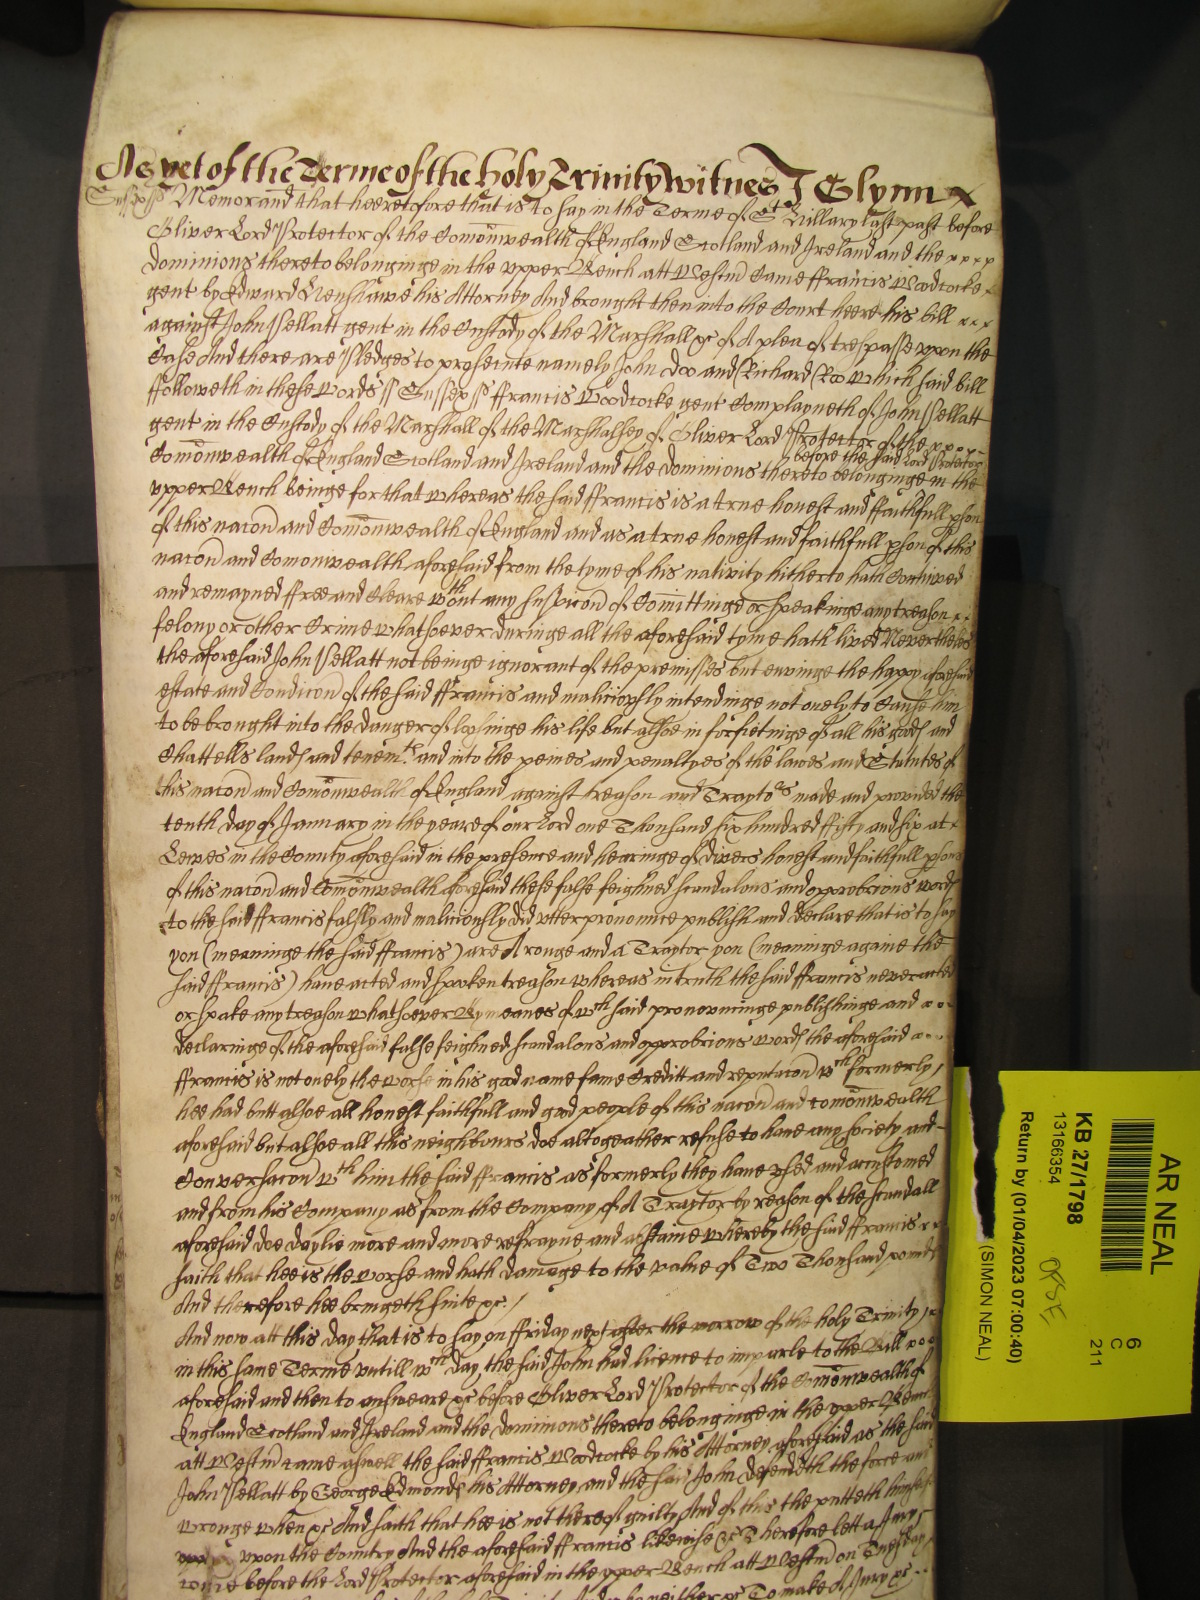 As yet of the Terme of the holy Trinity witnes J Glynn
Sussex ss Memorand that heeretofore that is to say in the Terme of St Hillary last past before
Oliver Lord Protector of the Comonwealth of England Scotland and Ireland and the
dominions thereto belonginge in the upper Bench att Westm Came ffrancis Woodcocke
gent by Edward Henshawe his Attorney And brought then into the Court heere his bill
against John Pellatt gent in the Custody of the Marshall &c of A plea of trespasse upon the
Case And there are Pledges to prosecute namely John Doo and Richard Roo Which said bill
ffolloweth in these words ss Sussex ss ffrancis Woodcocke gent Complayneth of John Pellatt
gent in the Custody of the Marshall of the Marshalsey of Oliver Lord Protector of the
before the said Lord Protector
Comonwealth of England Scotland and Ireland and the dominions thereto belonginge in the
upper Bench beinge for that whereas the said ffrancis is a true honest and ffaithfull pson
of this nacon and Comonwealth of England and as a true honest and faithfull pson of this
nacon and Comonwealth aforesaid from the tyme of his nativity hitherto hath Continued
and remayned ffree and Cleare wthout any suspicon of Comittinge or speakinge any treason
felony or other Crime whatsoever duringe all the aforesaid tyme hath lived Nevertheles
the aforesaid John Pellatt not beinge ignorant of the premisses but envinge the happy aforesaid
estate and Condicon of the said ffrancis and maliciously intendinge not onely to Cause him
to be brought into the danger of lossinge his life but alsoe in forfietinge of all his goods and
Chattells lands and tenemts and into the peines and penaltyes of the lawes and Statutes of
this nacon and Comonwealth of England against treason and Traytors made and provided the
tenth day of January in the yeare of our Lord one Thousand six hundred ffifty and six at
Lewes in the County aforesaid in the presence and hearinge of divers honest and faithfull psons
of this nacon and Comonwealth aforesaid these false feighned scandalous and opprobrious words
to the said ffrancis falsly and maliciously did utter pronounce publish and declare that is to say
you (meaninge the said ffrancis) are A rouge and a Traytor you (meaninge againe the
said ffrancis) have acted and spoken treason whereas in truth the said ffrancis never acted
or spake any treason whatsoever By meanes of wch said pronowninge publishinge and
declaringe of the aforesaid false feighned scandalous and opprobrious words the aforesaid
ffrancis is not onely the worse in his good name fame Creditt and reputacon wch formerly
hee had butt alsoe all honest faithfull and good people of this nacon and comonwealth
aforesaid but alsoe all this neighbours doe altogeather refuse to have any society and
Conversacon wth him the said ffrancis as formerly they have used and accustomed
and from his Company as from the Company of A Traytor by reason of the scandall
aforesaid doe daylie more and more refrayne and abstaine whereby the said ffrancis
saith that hee is the worse and hath damage to the value of Two Thousand pounds
And therefore hee bringeth suite &c
And now att this day that is to say on ffriday next after the morrow of the holy Trinity
in this same Terme untill wch day the said John had licence to imparle to the Bill
aforesaid and then to answeare &c before Oliver Lord Protector of the Comonwealth of
England Scotland and Ireland and the dominions thereto belonginge in the upper Bench
att Westm came aswell the said ffrancis Woodcocke by his Attorney aforesaid as the said
John Pellatt by George Edmonds his Attorney and the said John defendeth the force and
wronge when &c And saith that hee is not thereof guilty And of this the putteth himself
upon the Country And the aforesaid ffrancis likewise &c Therefore lett a Jury
come before the Lord Protector aforesaid in the upper Bench att Westm on Tuesday
To make A Jury &c
AR NEAL
6
C
211
KB 27/1798
13166354
Return by (01/04/2023 07:00:40)
(SIMON NEAL)